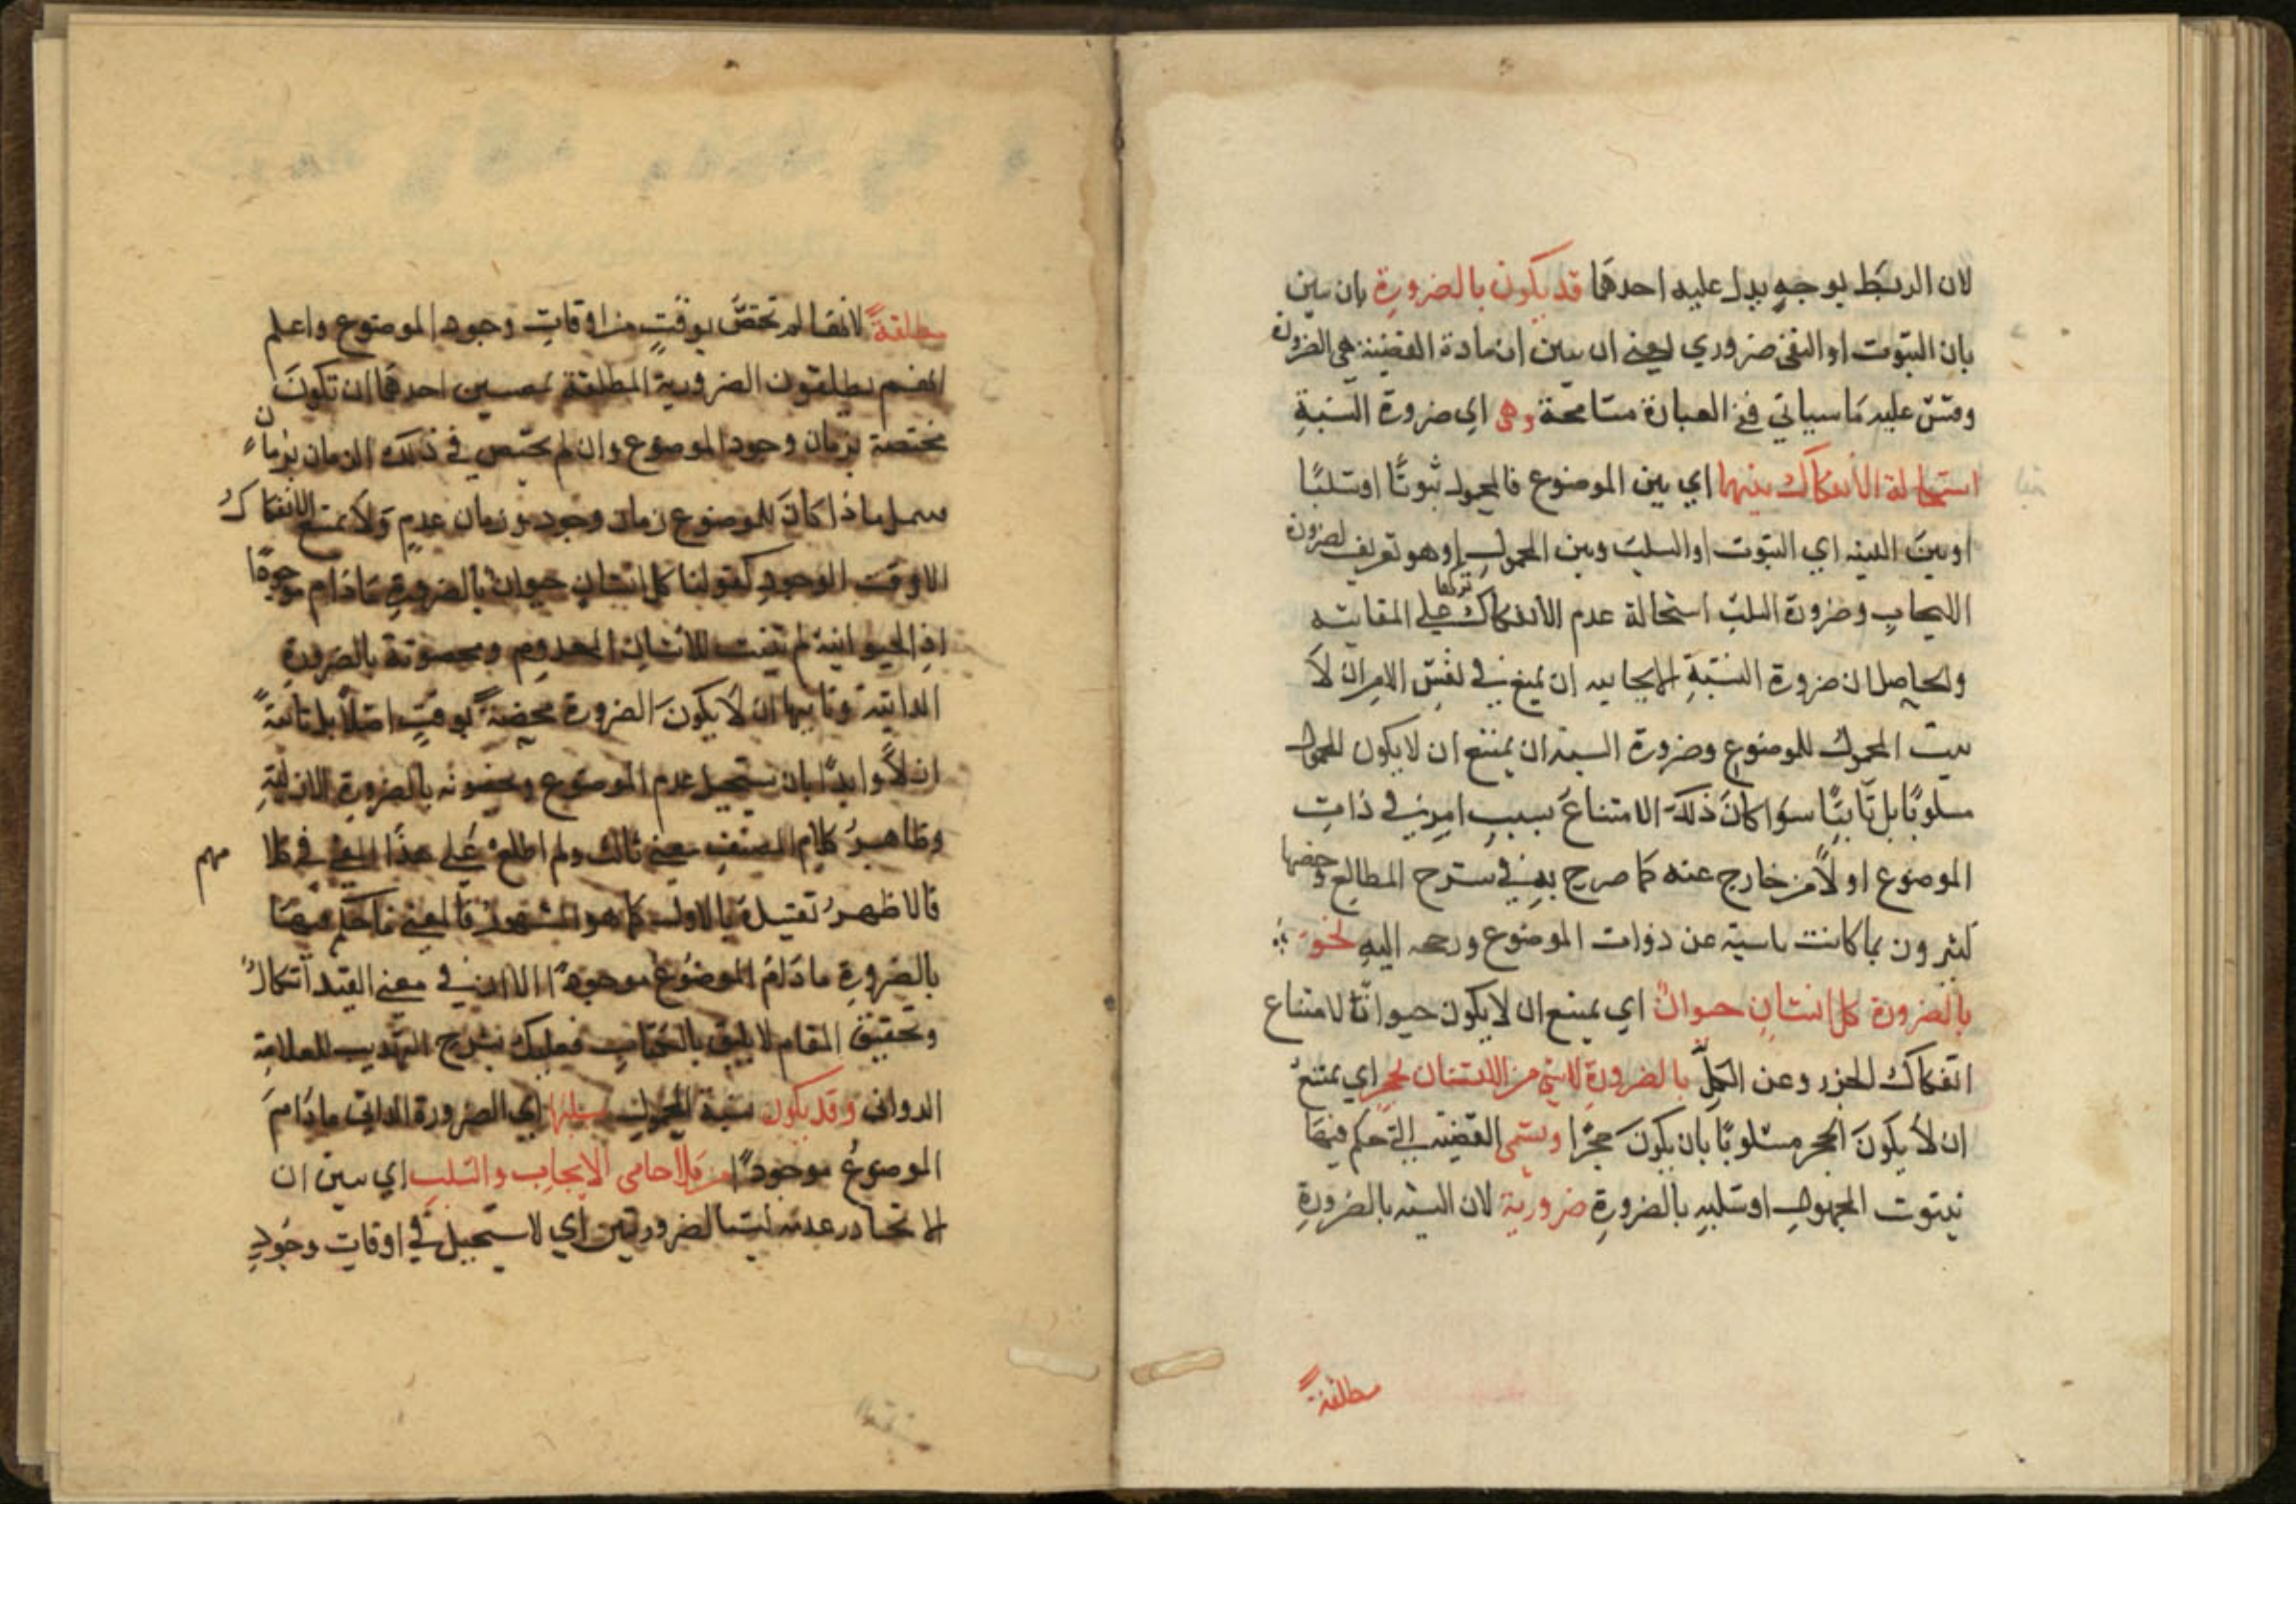 لان الربط يوجه يدل عليه احدهما قد يكون بالضرورة بان يبين
بان الثبوت او النفي ضروري يعني ان يبين ان مادة القضية هي الضرورة
وقس عليه ما سياتي ففي العبارة مسامحة وهي اي ضرورة النسبة
استحالة الانفكاك بينهما اي بين الموضوع فالمحمول ثبوتًا او سلبًا
او بين النسبة اي الثبوت او السلب وبين المحمول وهو تعريف لضرورة
الايجاب وضرورة السلب استحالة عدم الانفكاك تركها على المقايسة
والحاصل ان ضرورة النسبة الايجابية ان يمتنع في نفس الامر ان لا
يثبت المحمول للموضوع وضرورة السلبية ان يمتنع ان لا يكون المحمول
مسلوبًا بل ثابتًا سوا كان ذلك الامتناع بسبب امر في ذات
الموضوع او لامر خارج عنه كما صرح به في شرح المطالع وخصها
كثيرون بما كانت ناشية عن ذوات الموضوع اليه نحو
بالضرورة كل انسان حيوان اي يمتنع ان لا يكون حيوانًا لامتناع
انفكاك الجزء عن الكل بالضرورة لا شي من الانسان بحجر اي يمتنع
ان لا يكون الحجر مسلوبًا بان يكون حجرًا وتسمى القضية التي حكم فيها
بثبوت المحمول او سلبه بالضرورة ضرورية لان النسبة بالضرورة
مطلقة
مطلقة لانها لم تختص بوقت من اوقات وجود الموضوع واعلم
انهم يطلقون الضرورية المطلقة بمعنيين احدهما ان تكون
مختصة بزمان وجود الموضوع وان لم يختص في ذلك الزمان بزمان
ما اذا كان للموضوع زمان وجود وزمان عدم ولا يمتنع الانفكاك
الا وقت الوجود كقولنا كل انسان حيوان بالضرورة ما دام موجودًا
اذ الحيوانية لم تثبت للانسان المعدوم بالضرورة
الذاتية وثانيها ان لا يكون الضرورة مختصة بوقت اصلًا بل ثابتة
ازلًا وابدًا بان يستحيل عدم الموضوع بالضرورة الازلية
وظاهر كلام المصنف معنى ثالث ولم اطلع على هذا المعنى في كلامهم
فالاظهر تقييده بالاول كما هو المشهور فالمعنى ما حكم فيها
بالضرورة ما دام الموضوع موجودًا الا ان في معنى القيد اشكال
وتحقيق المقام لا يليق بالكتاب فعليك بشرح التهذيب للعلامة
الدواني وقد يكون نسبة المحمول بسلبها اي الضرورة الذاتي ما دام
الموضوع موجودًا من كلا جانبي الايجاب والسلب اي يبين ان
لا ليستا بضروريتين اي لا يستحيل في اوقات وجود